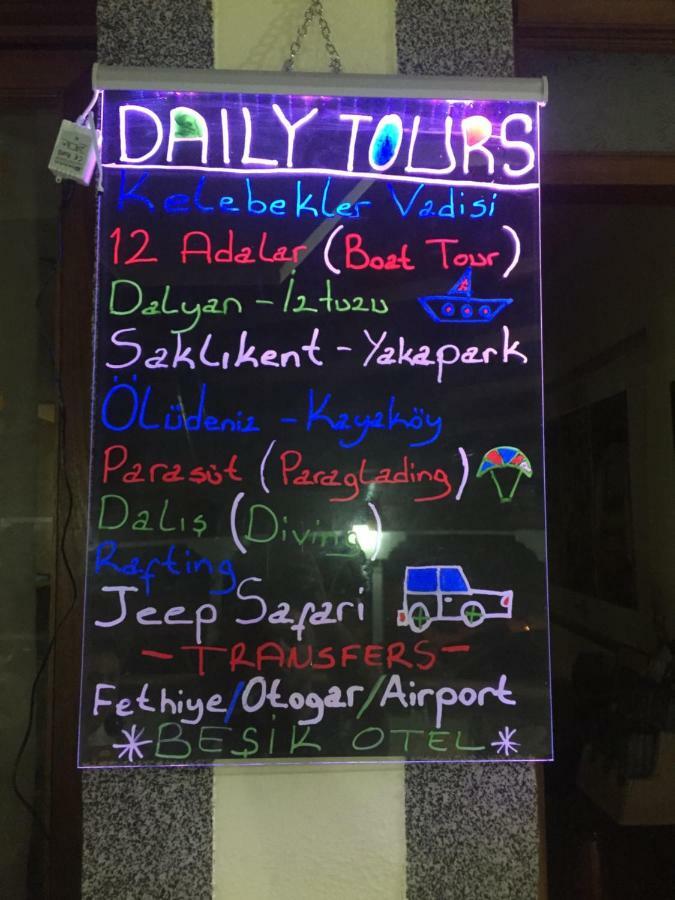 DAILY TOURS
Kelebekler Vadisi
12 Adalar (Boat Tour)
Dalyan - İztuzu
Saklıkent - Yakapark
Ölüdeniz - Kayaköy
Paraşüt (Paraglading)
Dalış (Diving)
Rafting
Jeep Safari
- TRANSFERS -
Fethiye/Otogar/Airport
* BEŞİK OTEL *